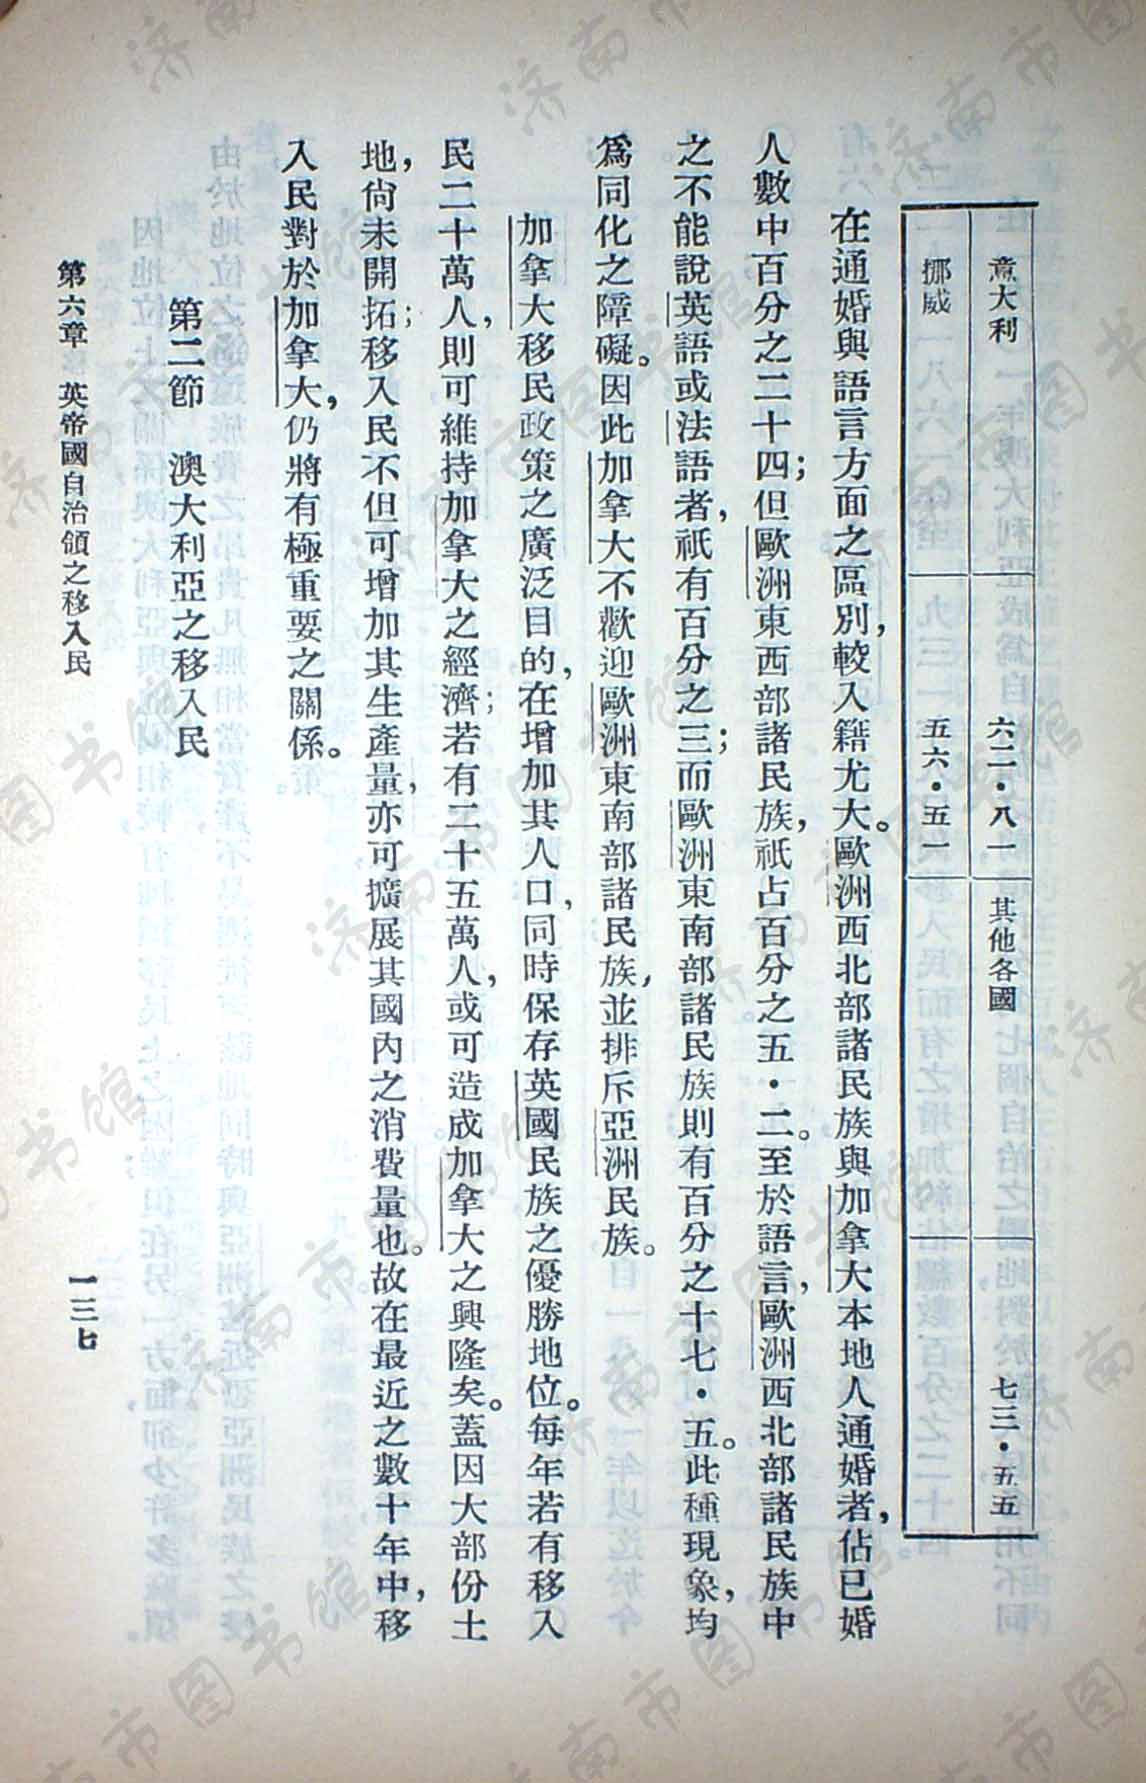 意大利 六二·八一 其他各國 七三·五五
挪威 五六·五一
在通婚與語言方面之區別，較入籍尤大。歐洲西北部諸民族與加拿大本地人通婚者，佔已婚
人數中百分之二十四；但歐洲東西部諸民族，祇占百分之五·二。至於語言，歐洲西北部諸民族中
之不能說英語或法語者，祇有百分之三；而歐洲東南部諸民族則有百分之十七·五。此種現象，均
爲同化之障礙。因此加拿大不歡迎歐洲東南部諸民族，並排斥亞洲民族。
加拿大移民政策之廣泛目的，在增加其人口，同時保存英國民族之優勝地位。每年若有移入
民二十萬人，則可維持加拿大之經濟；若有二十五萬人，或可造成加拿大之興隆矣。蓋因大部份土
地，尙未開拓；移入民不但可增加其生產量，亦可擴展其國內之消費量也。故在最近之數十年中，移
入民對於加拿大，仍將有極重要之關係。
第二節 澳大利亞之移入民
第六章 英帝國自治領之移入民 一三七
济南市图书馆